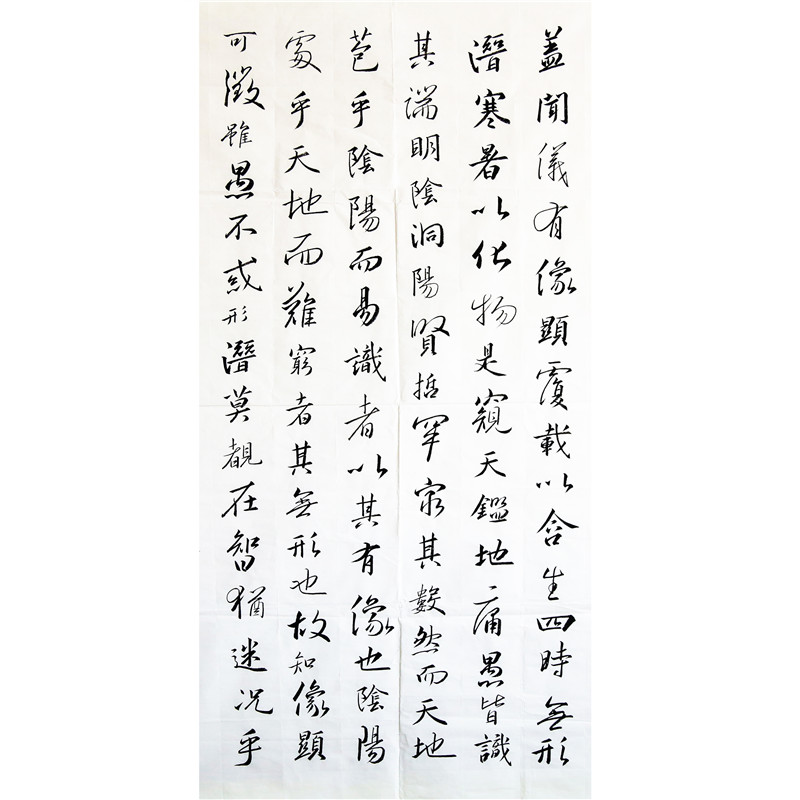 蓋聞儀有像顯覆載以含生四時無形
潛寒暑以化物是窺天鑑地庸愚皆識
其端明陰洞陽賢哲罕窮其數然而天地
苞乎陰陽而易識者以其有像也陰陽
處乎天地而難窮者其無形也故知像顯
可徵雖愚不惑形潛莫覩在智猶迷况乎